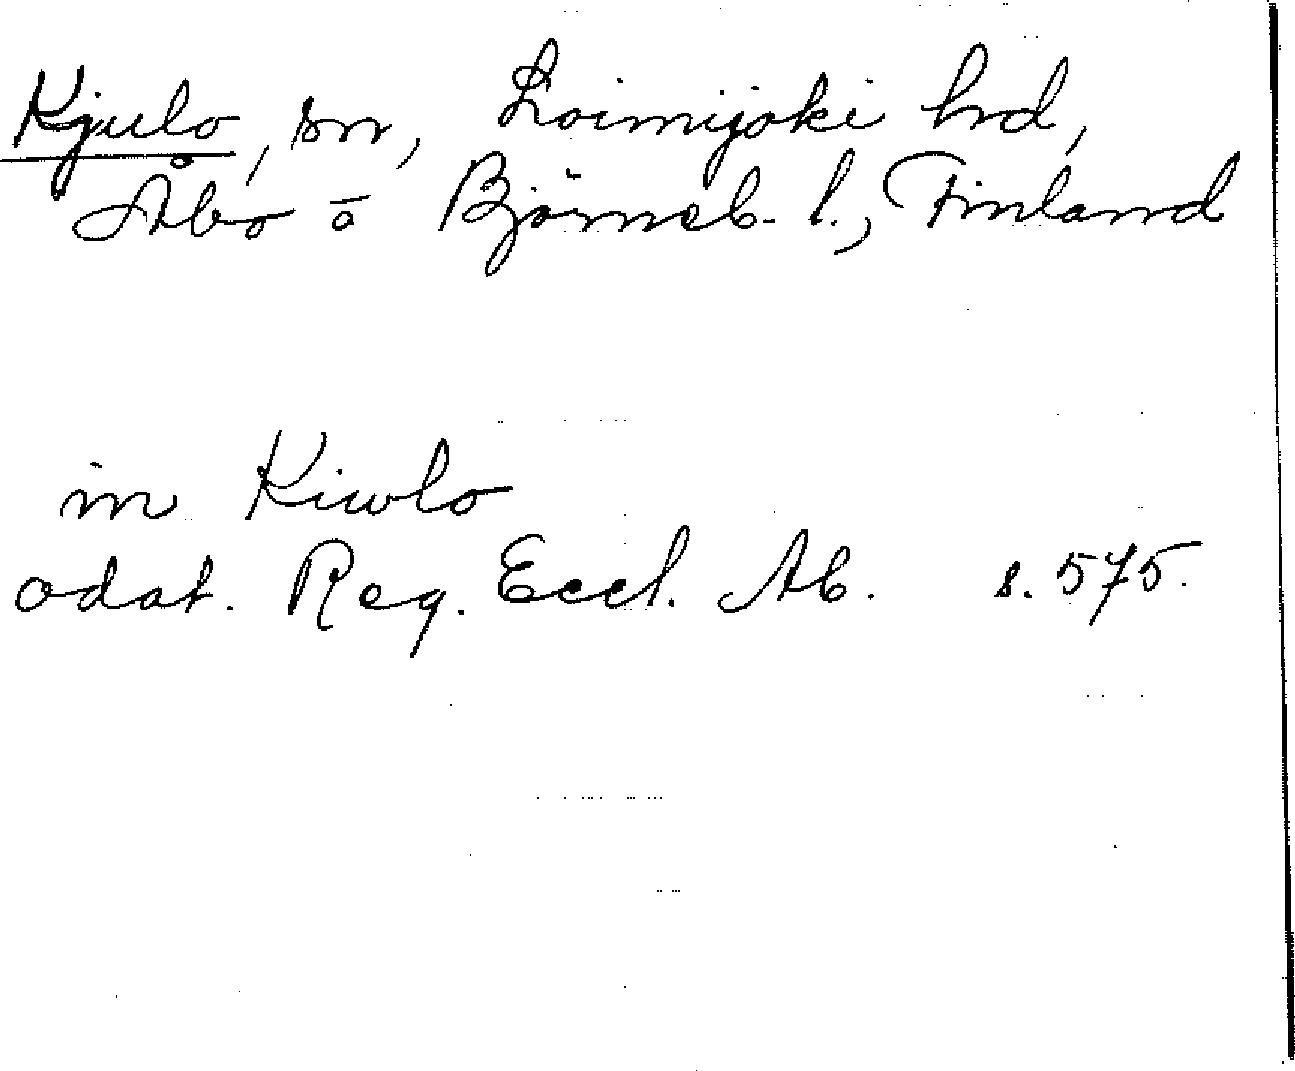 Kjulo, sn, Loimijoki hrd,
Åbo o Björneb. l., Finland
in Kiwlo
odat. Reg. Eccl. Ab. s. 575.